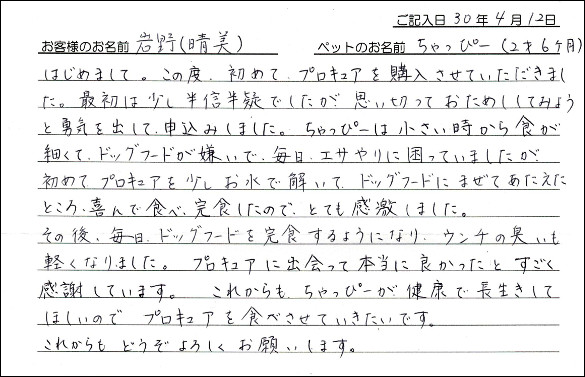 ご記入日 30年4月12日
お客様のお名前 岩野(晴美) ペットのお名前 ちゃっぴー(2才6ヶ月)
はじめまして。この度、初めて、プロキュアを購入させていただきまし
た。最初は少し半信半疑でしたが思い切っておためししてみよう
と勇気を出して、申込みしました。ちゃっぴーは小さい時から食が
細くて、ドッグフードが嫌いで、毎日、エサやりに困っていましたが
初めてプロキュアを少しお水で解いて、ドッグフードにまぜてあたえた
ところ、喜んで食べ、完食したので、とても感激しました。
その後、毎日、ドッグフードを完食するようになり、ウンチの臭いも
軽くなりました。プロキュアに出会って本当に良かったとすごく
感謝しています。これからも、ちゃっぴーが健康で長生きして
ほしいのでプロキュアを食べさせていきたいです。
これからもどうぞよろしくお願いします。